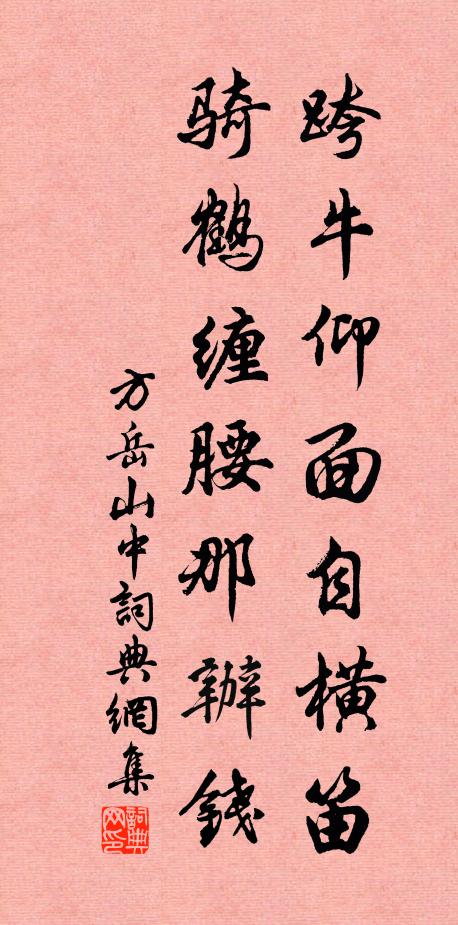 跨牛仰面自横笛
骑鹤缠腰那辦錢
方岳山中詞典網集
詞典
网印